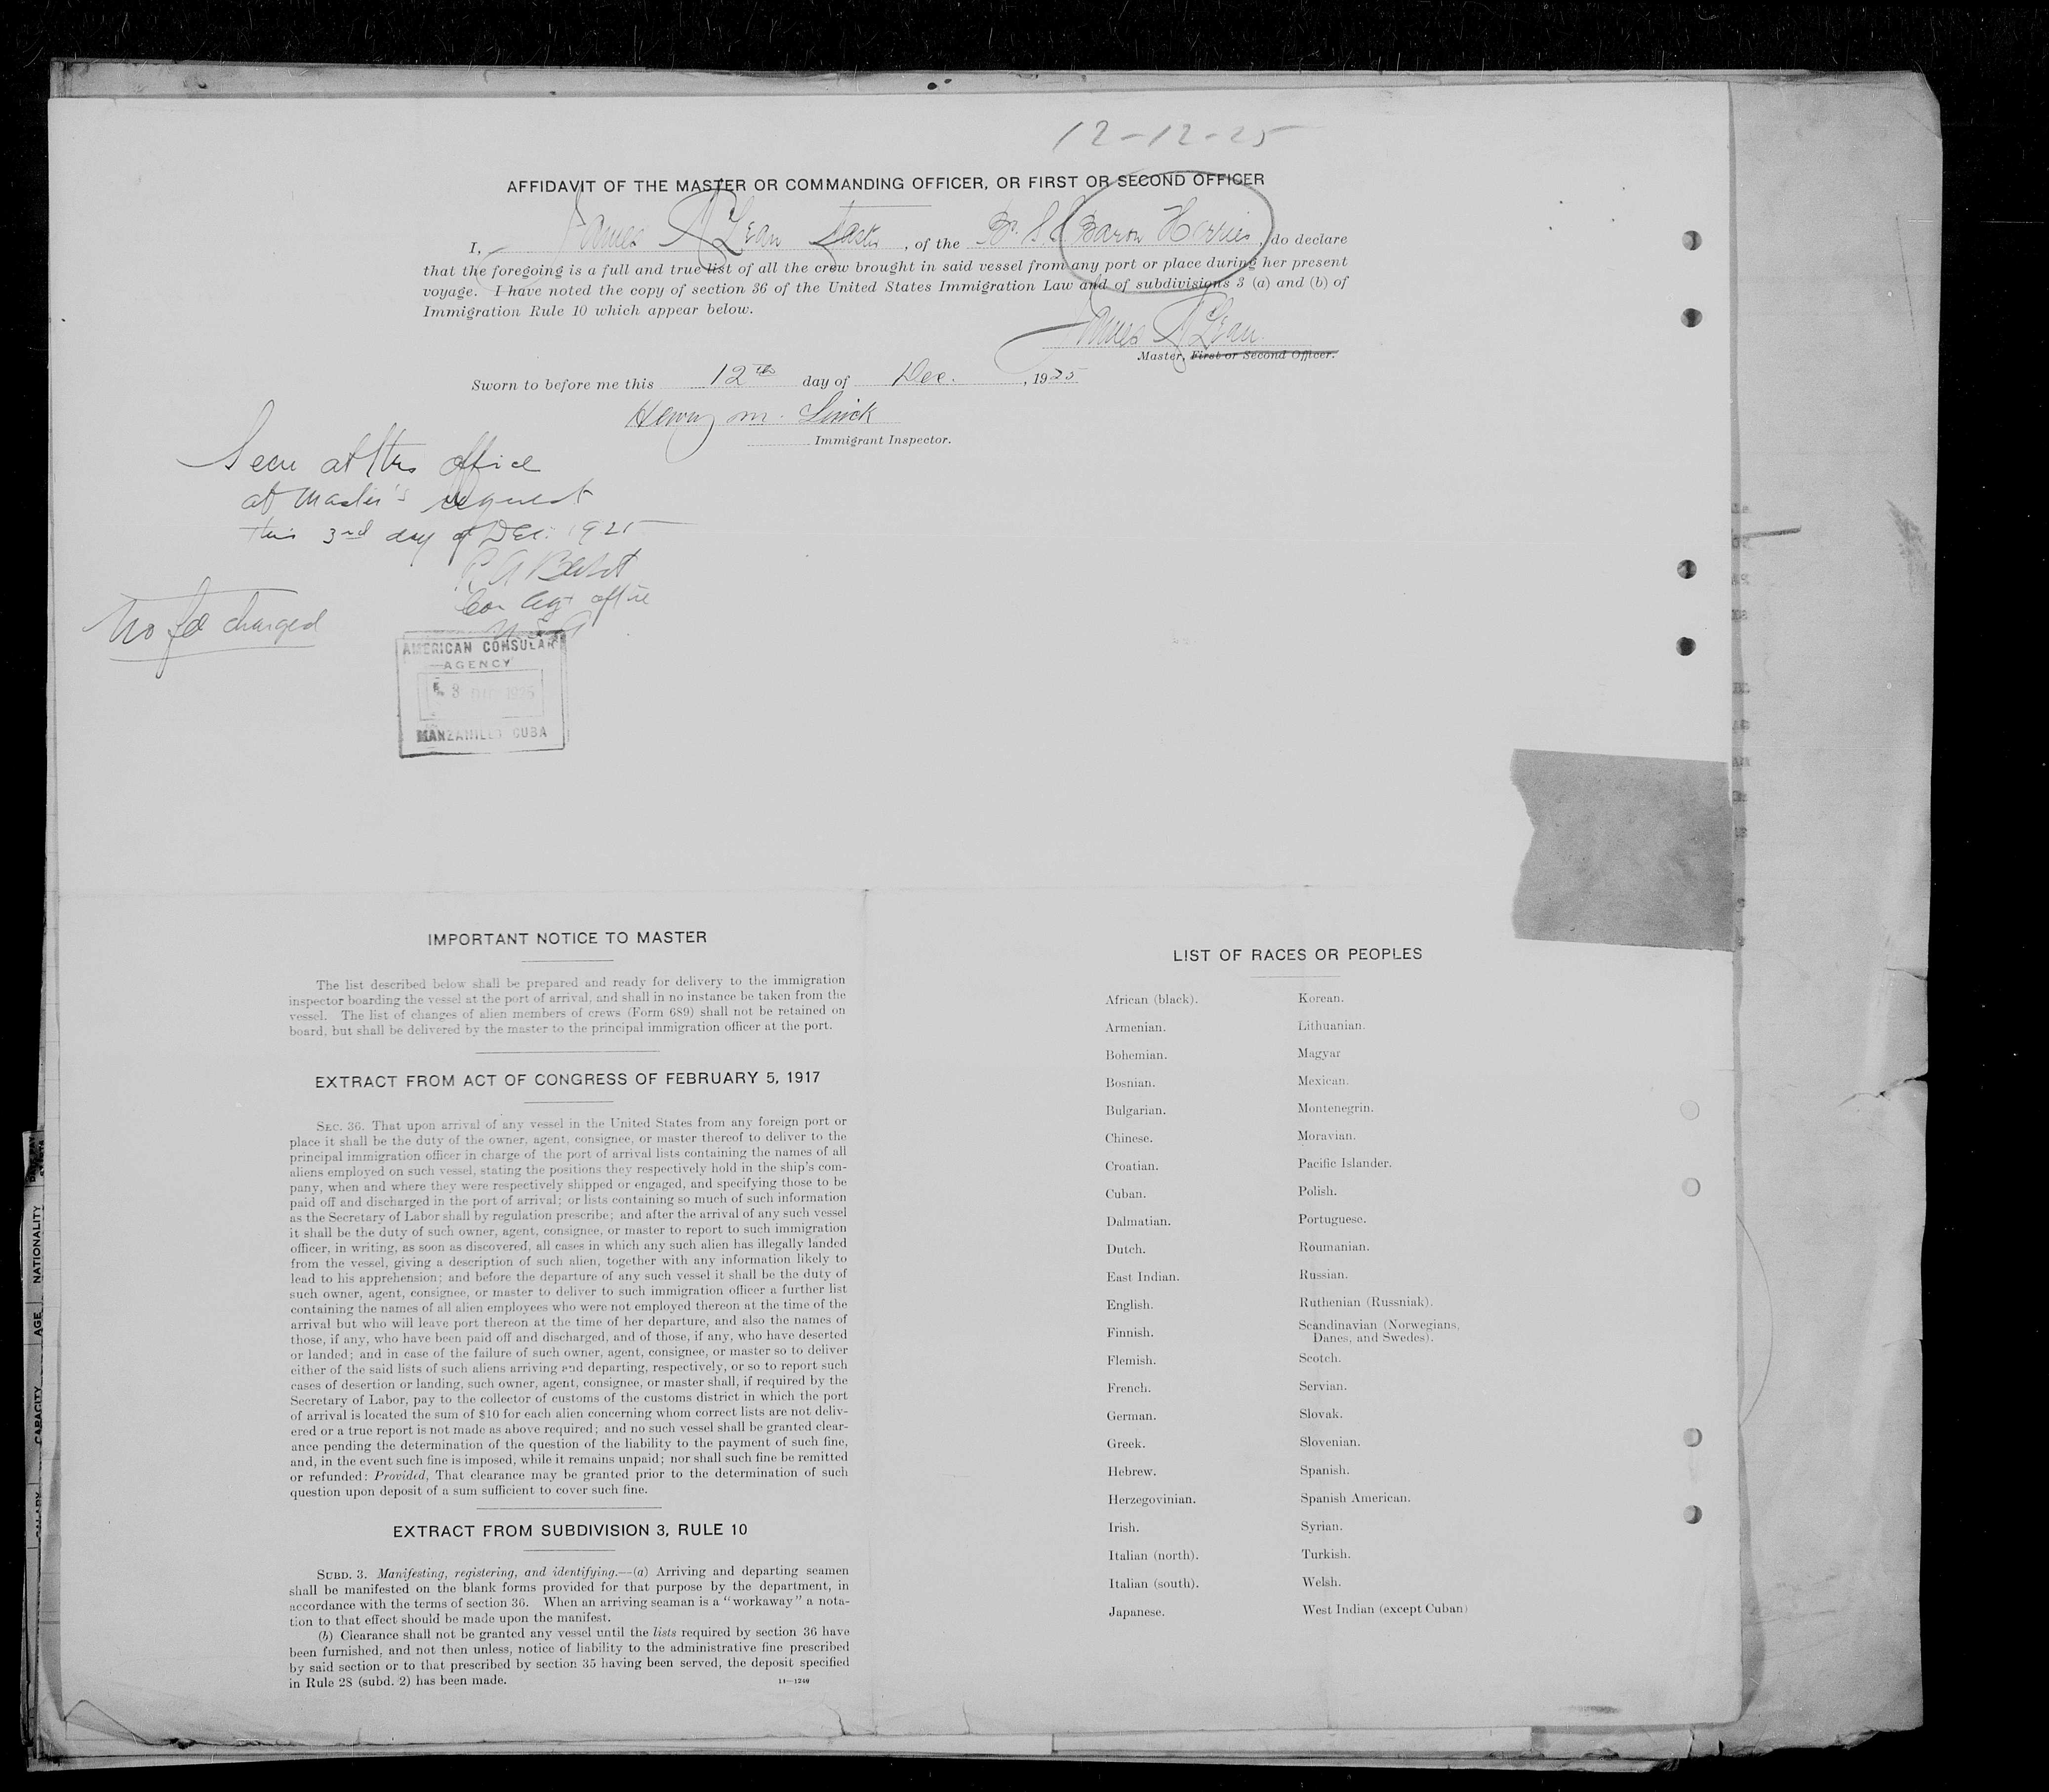 12-12-25
AFFIDAVIT OF THE MASTER OR COMMANDING OFFICER, OR FIRST OR SECOND OFFICER
I, James McLean Master, of the Br. S.S. Baron Herries, do declare
that the foregoing is a full and true list of all the crew brought in said vessel from any port or place during her present
voyage. I have noted the copy of section 36 of the United States Immigration Law and of subdivisions 3 (a) and (b) of
Immigration Rule 10 which appear below.
James McLean
Master, First or Second Officer.
Sworn to before me this 12th day of Dec., 1925
Henry M.
Immigrant Inspector.
Seen at this office
at Master's request
this 3rd day of Dec. 1925
Con Agt office
U.S.A
No fee charged
AMERICAN CONSULAR
AGENCY
3 DEC 1925
MANZANILLO CUBA
IMPORTANT NOTICE TO MASTER
The list described below shall be prepared and ready for delivery to the immigration
inspector boarding the vessel at the port of arrival, and shall in no instance be taken from the
vessel. The list of changes of alien members of crews (Form 689) shall not be retained on
board, but shall be delivered by the master to the principal immigration officer at the port.
EXTRACT FROM ACT OF CONGRESS OF FEBRUARY 5, 1917
SEC. 36. That upon arrival of any vessel in the United States from any foreign port or
place it shall be the duty of the owner, agent, consignee, or master thereof to deliver to the
principal immigration officer in charge of the port of arrival lists containing the names of all
aliens employed on such vessel, stating the positions they respectively hold in the ship's com-
pany, when and where they were respectively shipped or engaged, and specifying those to be
paid off and discharged in the port of arrival; or lists containing so much of such information
as the Secretary of Labor shall by regulation prescribe; and after the arrival of any such vessel
it shall be the duty of such owner, agent, consignee, or master to report to such immigration
officer, in writing, as soon as discovered, all cases in which any such alien has illegally landed
from the vessel, giving a description of such alien, together with any information likely to
lead to his apprehension; and before the departure of any such vessel it shall be the duty of
such owner, agent, consignee, or master to deliver to such immigration officer a further list
containing the names of all alien employees who were not employed thereon at the time of the
arrival but who will leave port thereon at the time of her departure, and also the names of
those, if any, who have been paid off and discharged, and of those, if any, who have deserted
or landed; and in case of the failure of such owner, agent, consignee, or master so to deliver
either of the said lists of such aliens arriving and departing, respectively, or so to report such
cases of desertion or landing, such owner, agent, consignee, or master shall, if required by the
Secretary of Labor, pay to the collector of customs of the customs district in which the port
of arrival is located the sum of $10 for each alien concerning whom correct lists are not deliv-
ered or a true report is not made as above required; and no such vessel shall be granted clear-
ance pending the determination of the question of the liability to the payment of such fine,
and, in the event such fine is imposed, while it remains unpaid; nor shall such fine be remitted
or refunded: Provided, That clearance may be granted prior to the determination of such
question upon deposit of a sum sufficient to cover such fine.
EXTRACT FROM SUBDIVISION 3, RULE 10
SUBD. 3. Manifesting, registering, and identifying.—(a) Arriving and departing seamen
shall be manifested on the blank forms provided for that purpose by the department, in
accordance with the terms of section 36. When an arriving seaman is a "workaway" a nota-
tion to that effect should be made upon the manifest.
(b) Clearance shall not be granted any vessel until the lists required by section 36 have
been furnished, and not then unless, notice of liability to the administrative fine prescribed
by said section or to that prescribed by section 35 having been served, the deposit specified
in Rule 28 (subd. 2) has been made.
14—1240
LIST OF RACES OR PEOPLES
African (black).
Armenian.
Bohemian.
Bosnian.
Bulgarian.
Chinese.
Croatian.
Cuban.
Dalmatian.
Dutch.
East Indian.
English.
Finnish.
Flemish.
French.
German.
Greek.
Hebrew.
Herzegovinian.
Irish.
Italian (north).
Italian (south).
Japanese.
Korean.
Lithuanian.
Magyar
Mexican.
Montenegrin.
Moravian.
Pacific Islander.
Polish.
Portuguese.
Roumanian.
Russian.
Ruthenian (Russniak).
Scandinavian (Norwegians,
Danes, and Swedes).
Scotch.
Servian.
Slovak.
Slovenian.
Spanish.
Spanish American.
Syrian.
Turkish.
Welsh.
West Indian (except Cuban)
NATIONALITY
AGE
CAPACITY